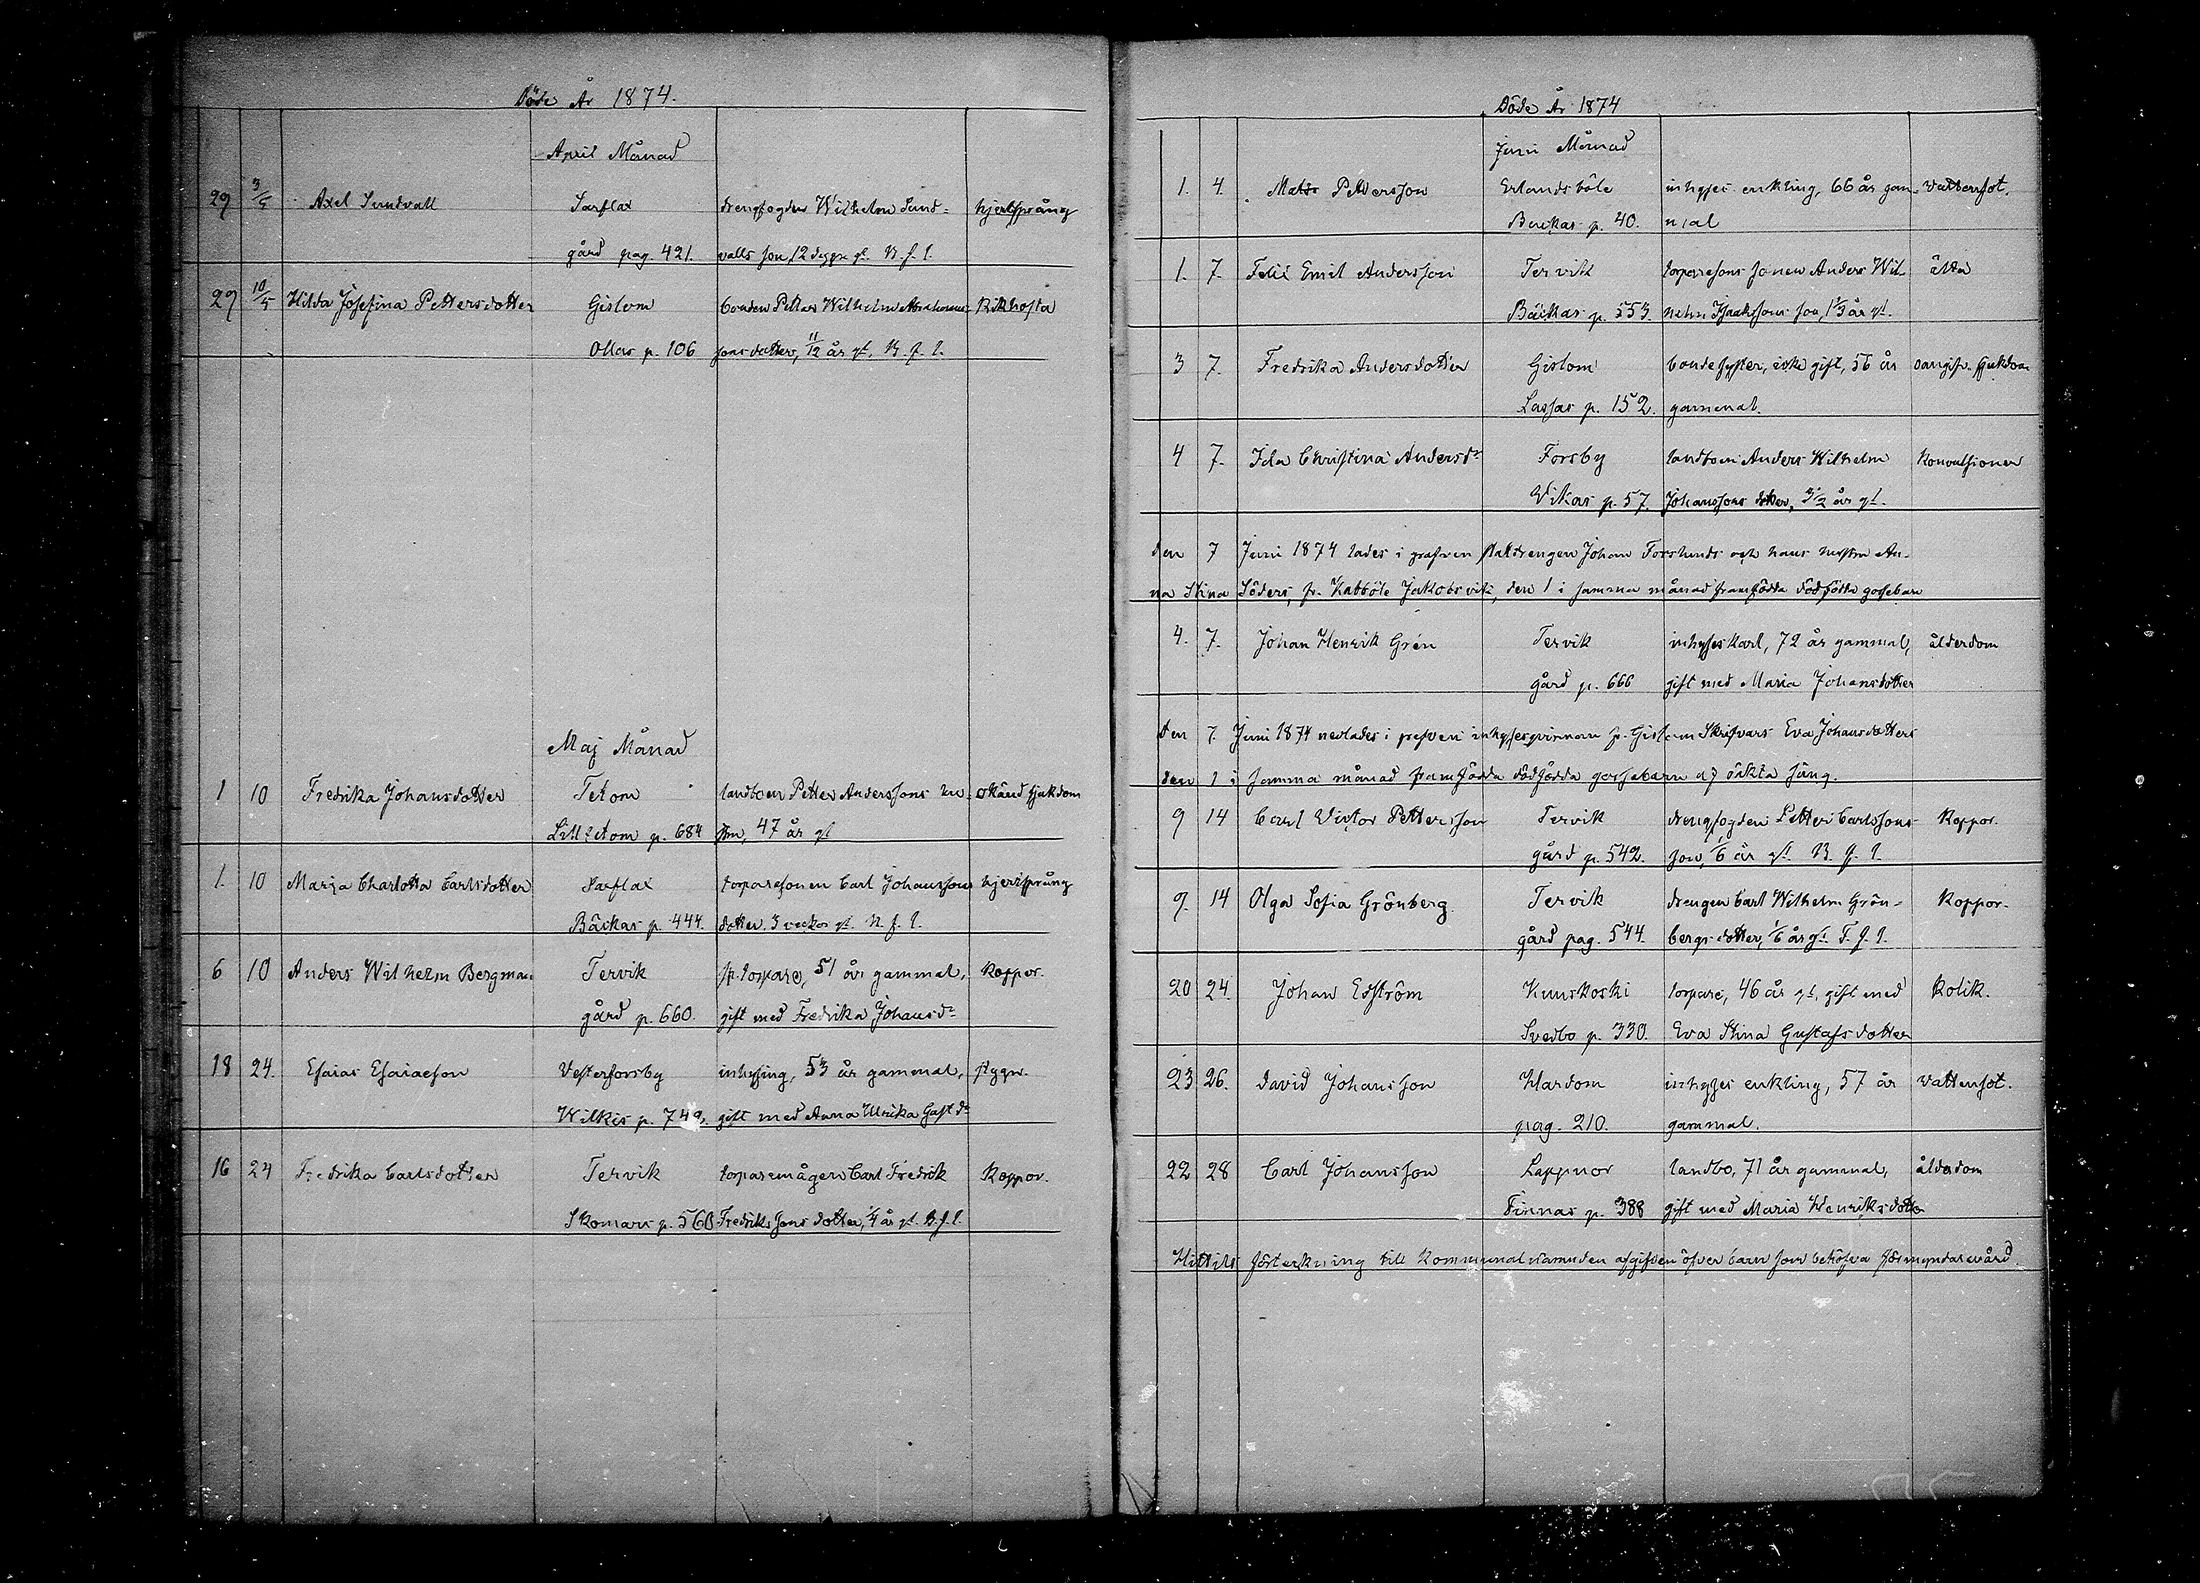 Döde År 1874.
April Månad
29 3/5 Axel Sundvall Sarflax drengfogden Wilhelm Sund- hjertsprång
gård pag. 421. valls son, 12 dygn gl. N. f. l.
29 10/5 Hilda Josefina Pettersdotter Gislom bonden Petter Wilhelm Abrahams- Kikhosta
Ollas p. 106 sons dotter, 11/12 år gl. N. f. l.
Maj Månad
1 10 Fredrika Johansdotter Tetom landboen Petter Anderssons hu- okänd sjukdom
Lilltetom p. 684 stru, 47 år gl
1. 10 Marja Charlotta Carlsdotter Sarflax torparesonen Carl Johanssons hjertsprång
Bäckas p. 444. dotter. 3 veckor gl. N. f. l.
6 10 Anders Wilhelm Bergman Tervik torpare, 51 år gammal, koppor.
gård p. 660. gift med Fredrika Johansdr
18 24. Esaias Esaiaeson Vesterforsby inhysing, 53 år gammal,
Wilkis p. gift med Anna Ulrika Gust dr
16 24 Fredrika Carlsdotter Tervik torparemågen Carl Fredrik Koppor.
Skomars p. 560 Fredrikssons dotter, 1/4 år gl. N. f. l.
Döde År 1874
Juni Månad
1. 4. Mats Pettersson Erlandsböle inhyses enkling, 66 år gam- vattensot.
p. 40. mal
1. 7. Felix Emil Andersson Tervik torparesons sonen Anders Wil- älta
Bäckas p. 553. helm Isakssons son, 1 1/3 år gl.
3 7. Fredrika Andersdotter Gislom bondesyster, icke gift, 56 år oangifv. sjukdom
Lassas p. 152. gammal.
4 7. Ida Christina Andersdr Forsby landboen Anders Wilhelm Konvulsioner
Vikas p. 57. Johanssons dotter, 3 1/2 år gl.
den 7 Juni 1874 lades i grafven statdrengen Johan Forslunds och hans hustru An-
na Stina Söders, fr. Kabböle Jakobsvik, den 1 i samma månad framfödda dödfödda gossebarn
4. 7. Johan Henrik Grén Tervik inhyseskarl, 72 år gammal, ålderdom
gård p. 666 gift med Maria Johansdotter
den 7. Juni 1874 nedlades i grefven inhysesqvinnan fr. Gislom Skrifvars Eva Johansdotters
den 1 i samma månad framfödda dödfödda gossebarn af oäkta säng.
9 14 Carl Victor Pettersson Tervik drengfogden Petter Carlssons Koppor.
gård p. 542. son, 1/6 år gl. N. f. l.
9. 14 Olga Sofia Grönberg. Tervik drengen Carl Wilhelm Grön- Koppor.
gård pag. 544. bergs dotter, 1/6 år gl. F. f. l.
20 24. Johan Edström Kuuskoski torpare, 46 år gl, gift med Kolik.
Svedbo p. 330. Eva Stina Gustafsdotter
23 26. David Johansson Hardom inhyses enkling, 57 år vattensot.
pag. 210. gammal.
22 28 Carl Johansson Lappnor landbo, 71 år gammal, ålderdom
Finnas p. 388 gift med Maria Henriksdotter
Hittils förtekning till Kommunalnämnden afgifven öfver barn som behöfva förmyndarevård.